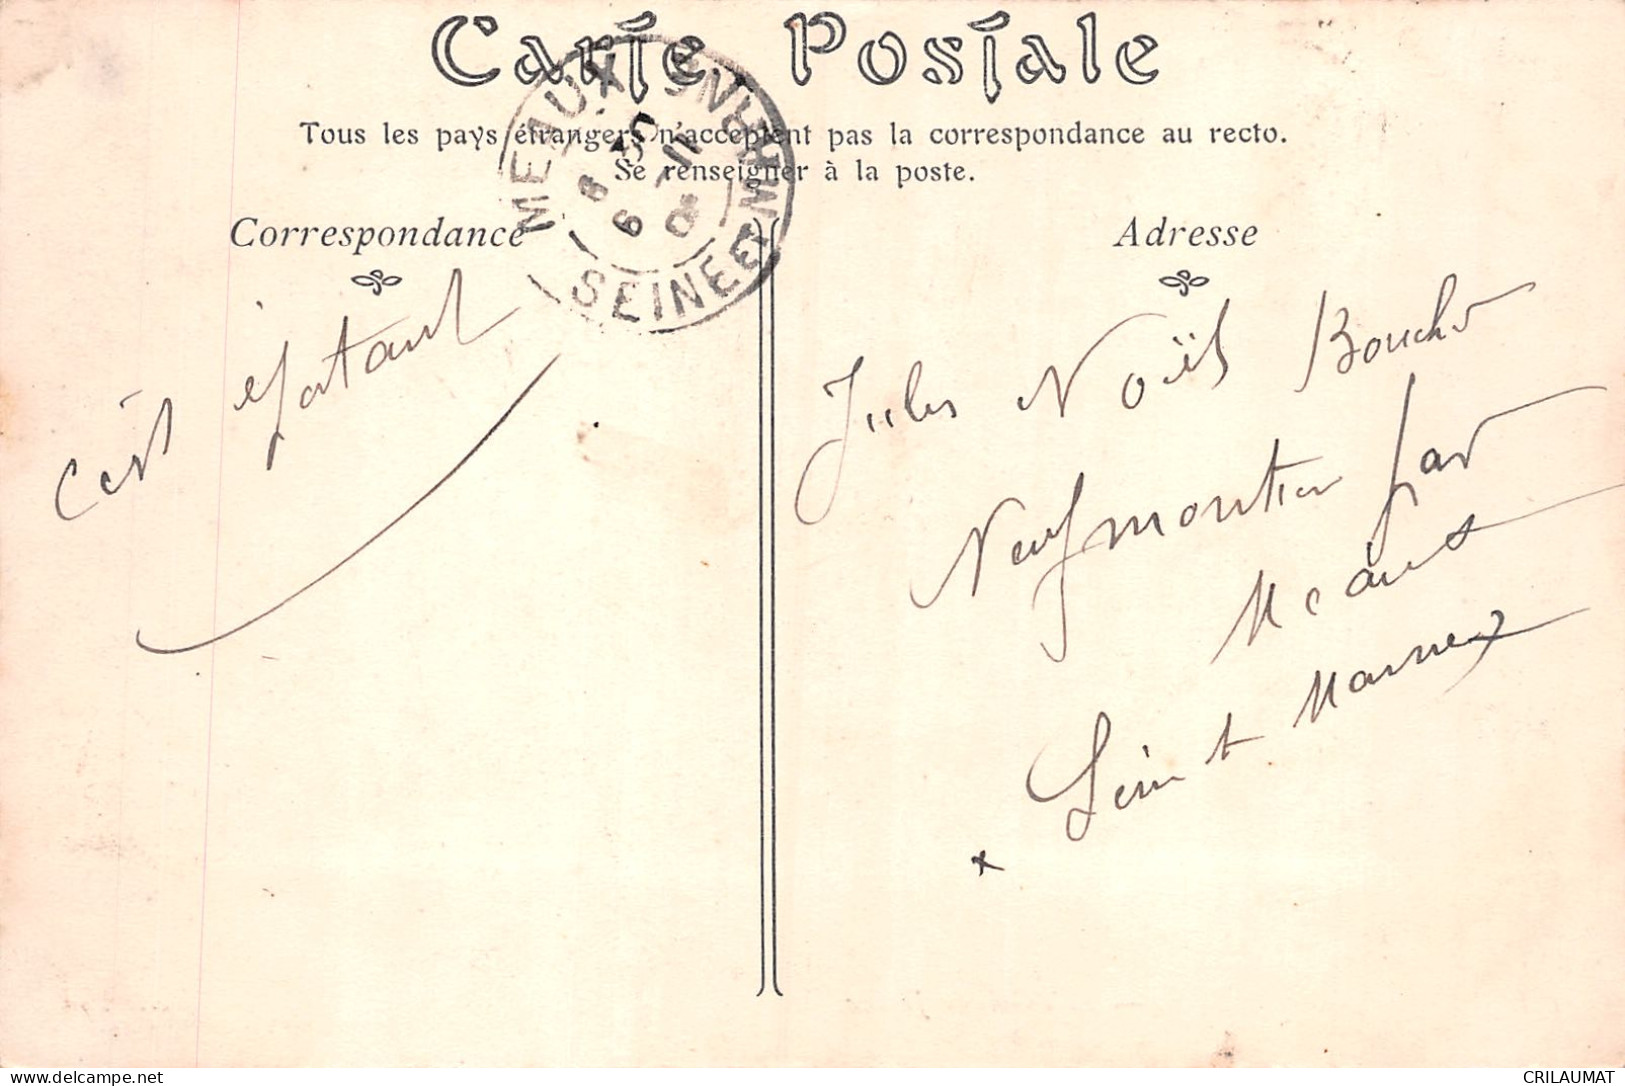 Carte Postale
Tous les pays étrangers n'acceptent pas la correspondance au recto.
Se renseigner à la poste.
MEAUX
SEINE ET MARNE
Correspondance
Adresse
c'est épatant
Jules Noël
Neufmontier par
Meaux
Seine et Marne
x
www.delcampe.net
CRILAUMAT